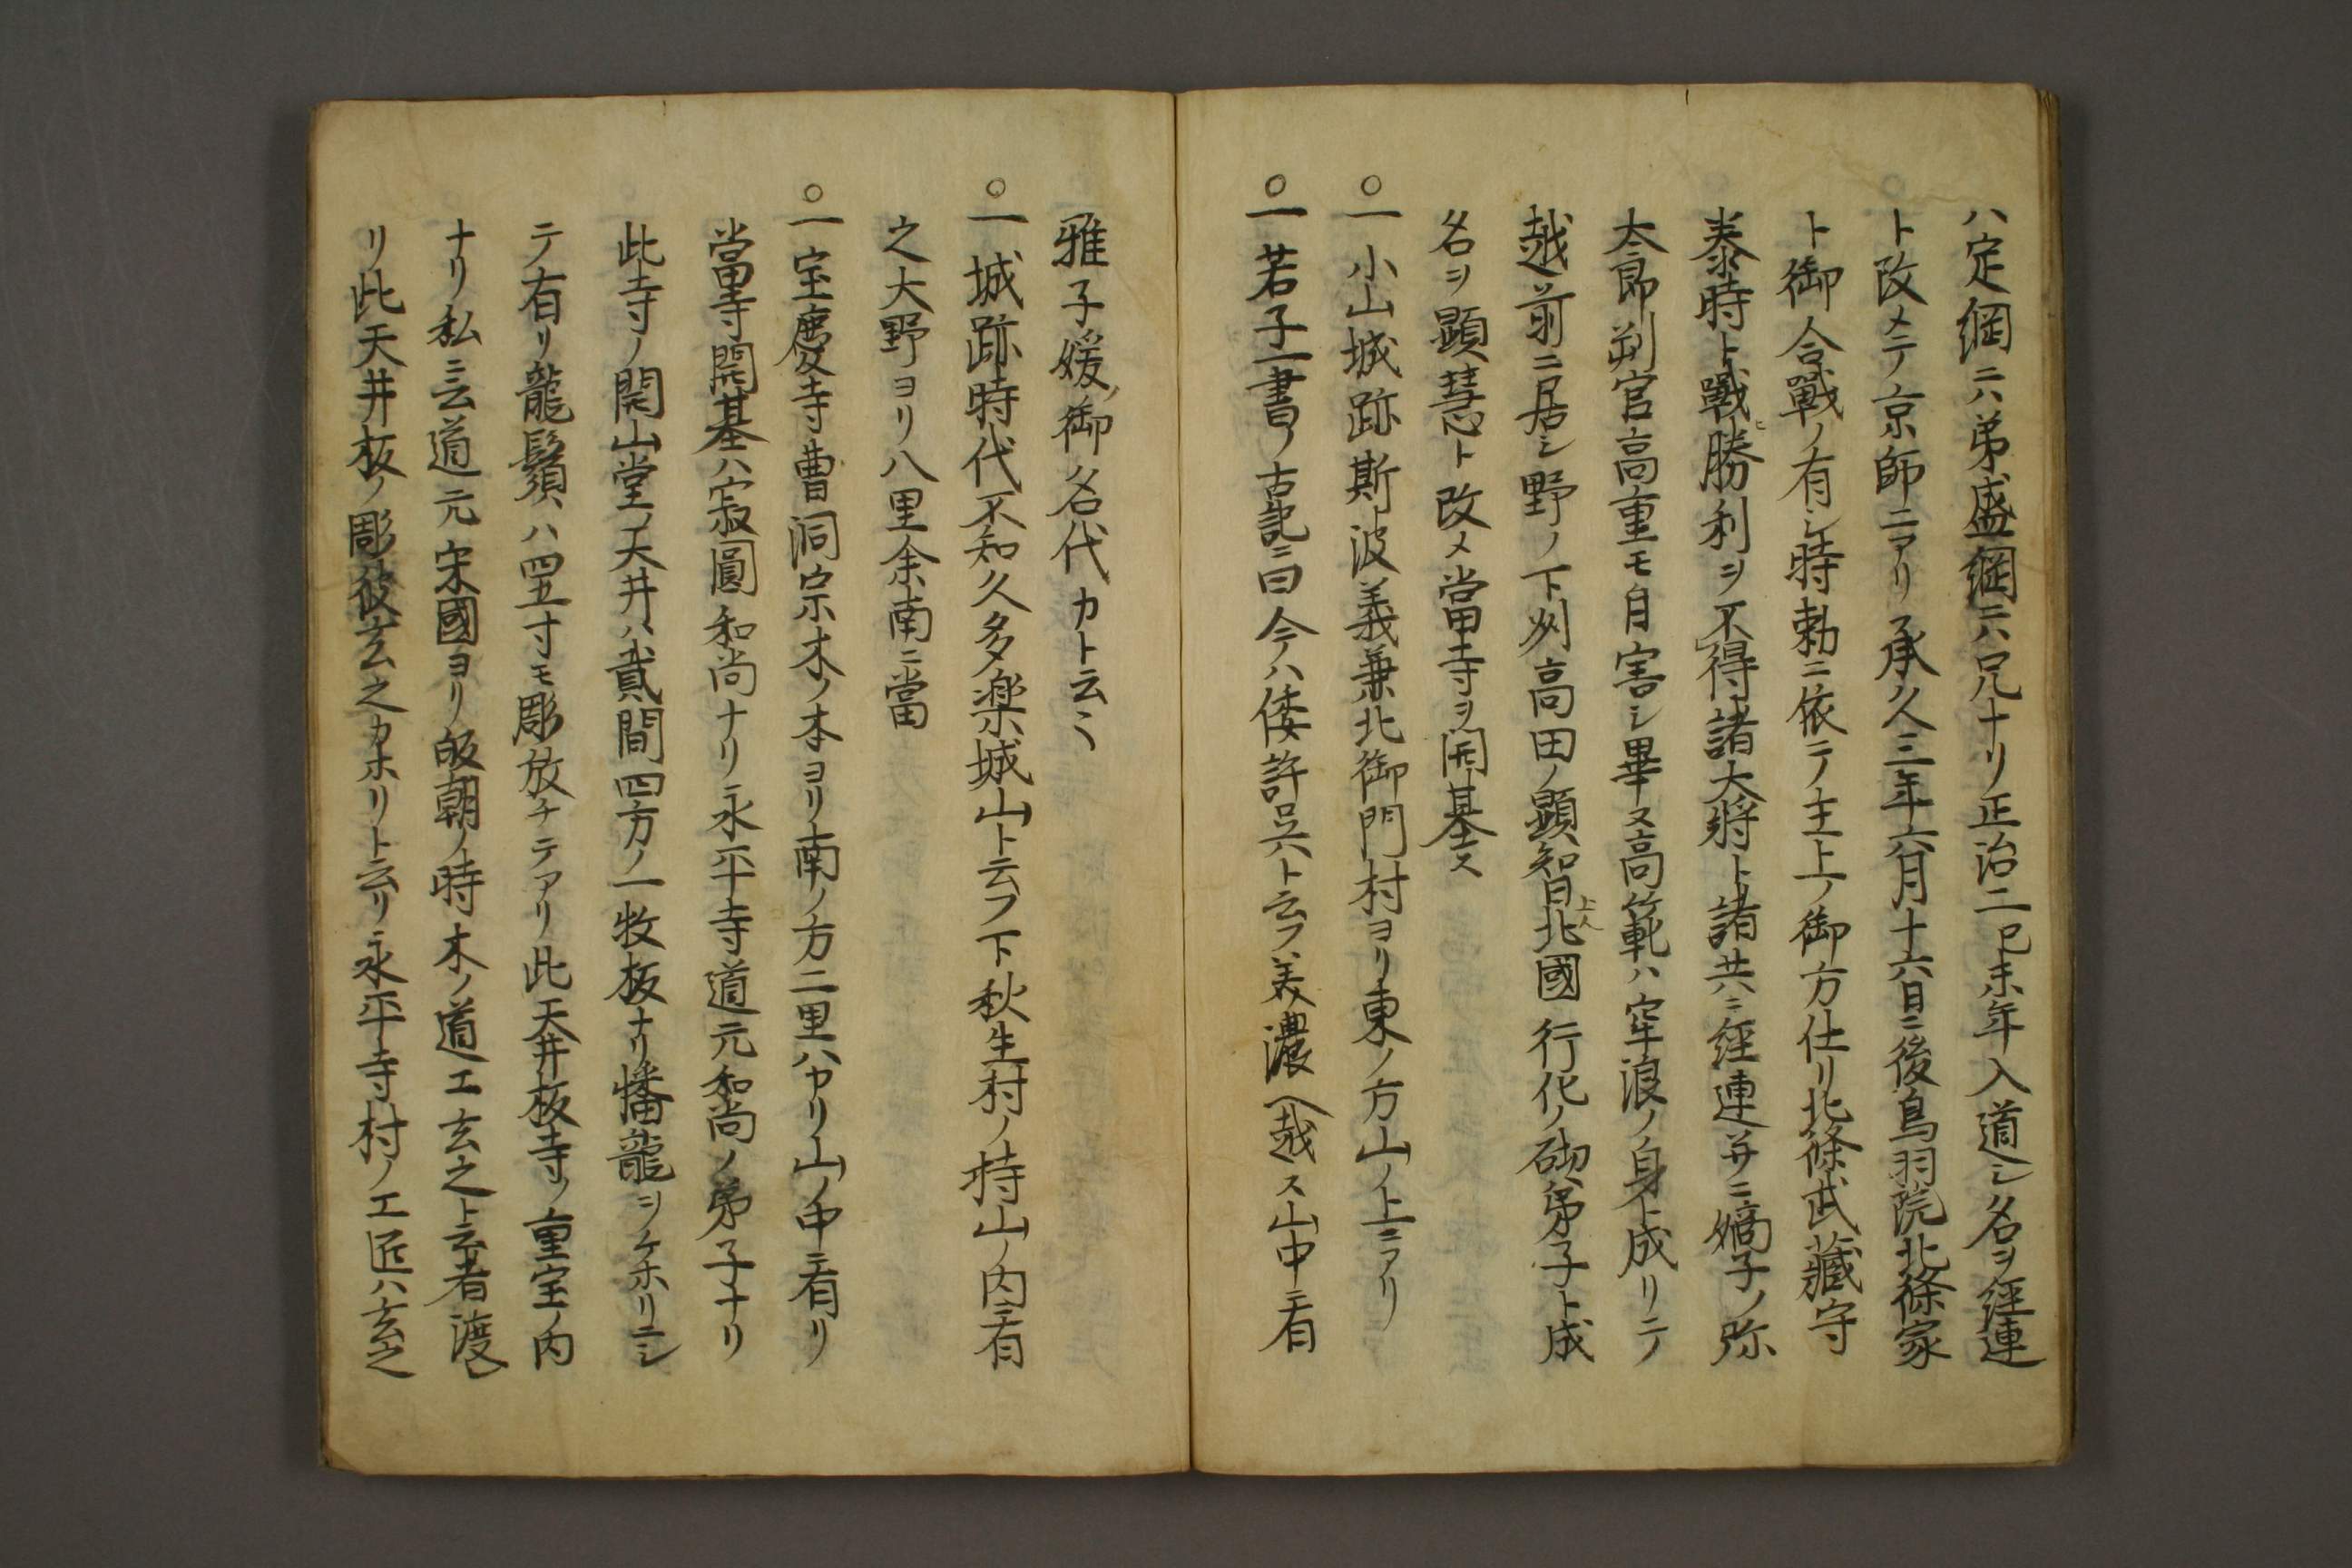 ハ定綱ニハ弟盛綱ニハ兄ナリ正治二己未年入道シ名ヲ経連
ト改メテ京師ニアリ承久三年六月十六日ニ後鳥羽院北條家
ト御合戰ノ有シ時勅ニ依テ主上ノ御方仕リ北條武藏守
泰時ト戰ヒ勝利ヲ不得諸大将ト諸共ニ経連并ニ嫡子ノ弥
太郎判官高重モ自害シ畢ヌ高範ハ窂浪ノ身ト成リテ
越前ニ居シ野ノ下州高田ノ顕智上人北國行化ノ砌弟子ト成
名ヲ顕慧ト改メ當寺ヲ開基ス
○一 小山城跡斯波義兼北御門村ヨリ東ノ方山ノ上ニアリ
○一 若子一書ノ古記ニ曰今ハ倭許呉ト云フ美濃ヘ越ス山中ニ有
雅子媛ノ御名代カト云々
○一 城跡時代不知久多楽城山ト云フ下秋生村ノ持山ノ内ニ有
之大野ヨリ八里余南ニ當
○一 宝慶寺曹洞宗木ノ本ヨリ南ノ方二里ハカリ山ノ中ニ有リ
當寺開基ハ寂圓和尚ナリ永平寺道元和尚ノ弟子ナリ
此寺ノ開山堂ノ天井ハ貳間四方ノ一牧板ナリ幡龍ヲケホリニシ
テ有リ龍鬚ハ四五寸モ彫放チテアリ此天井板寺ノ重宝ノ内
ナリ私ニ云道元宋國ヨリ皈朝ノ時木ノ道工玄之ト云者渡
リ此天井板ノ彫彼玄之カホリト云リ永平寺村ノ工匠ハ玄之